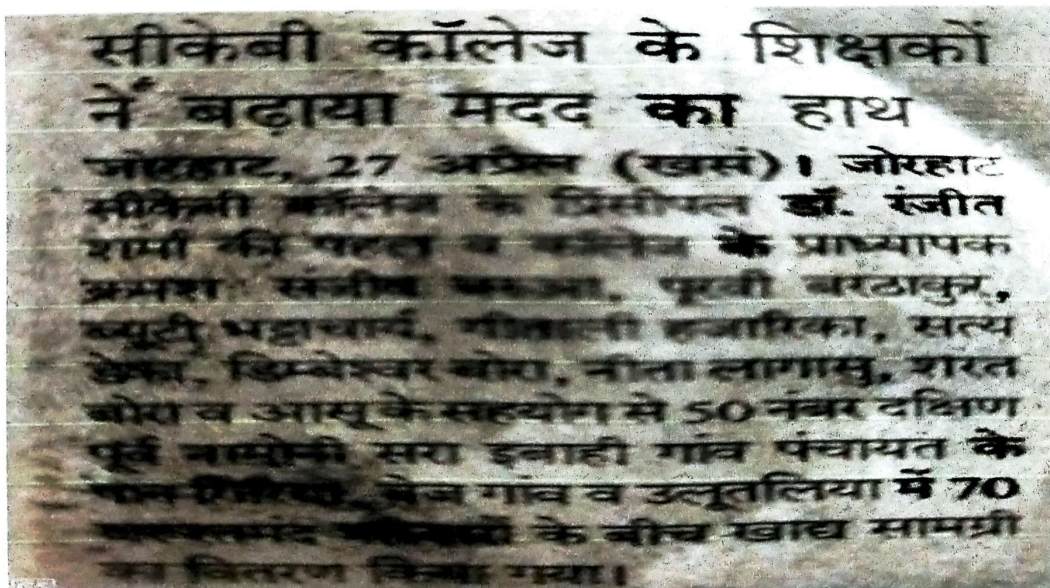 सीकेबी कॉलेज के शिक्षकों
नें बढ़ाया मदद का हाथ
जोरहाट, 27 अप्रैल (खसं)। जोरहाट
सीकेबी कॉलेज के प्रिंसीपल डॉ. रंजीत
शर्मा की पहल व कॉलेज के प्राध्यापक
क्रमश संजीब बरुआ, पूरबी बरठाकुर,
ब्यूटी भट्टाचार्य, गीताली हजारिका, सत्य
डिम्बेश्वर बोरा, नीता लागासु, शरत
बोरा व आसू के सहयोग से 50 नंबर दक्षिण
पूर्व सरा इबाही गांव पंचायत के
बेज गांव व उलूतलिया में 70
के बीच खाद्य सामग्री
का वितरण किया गया।